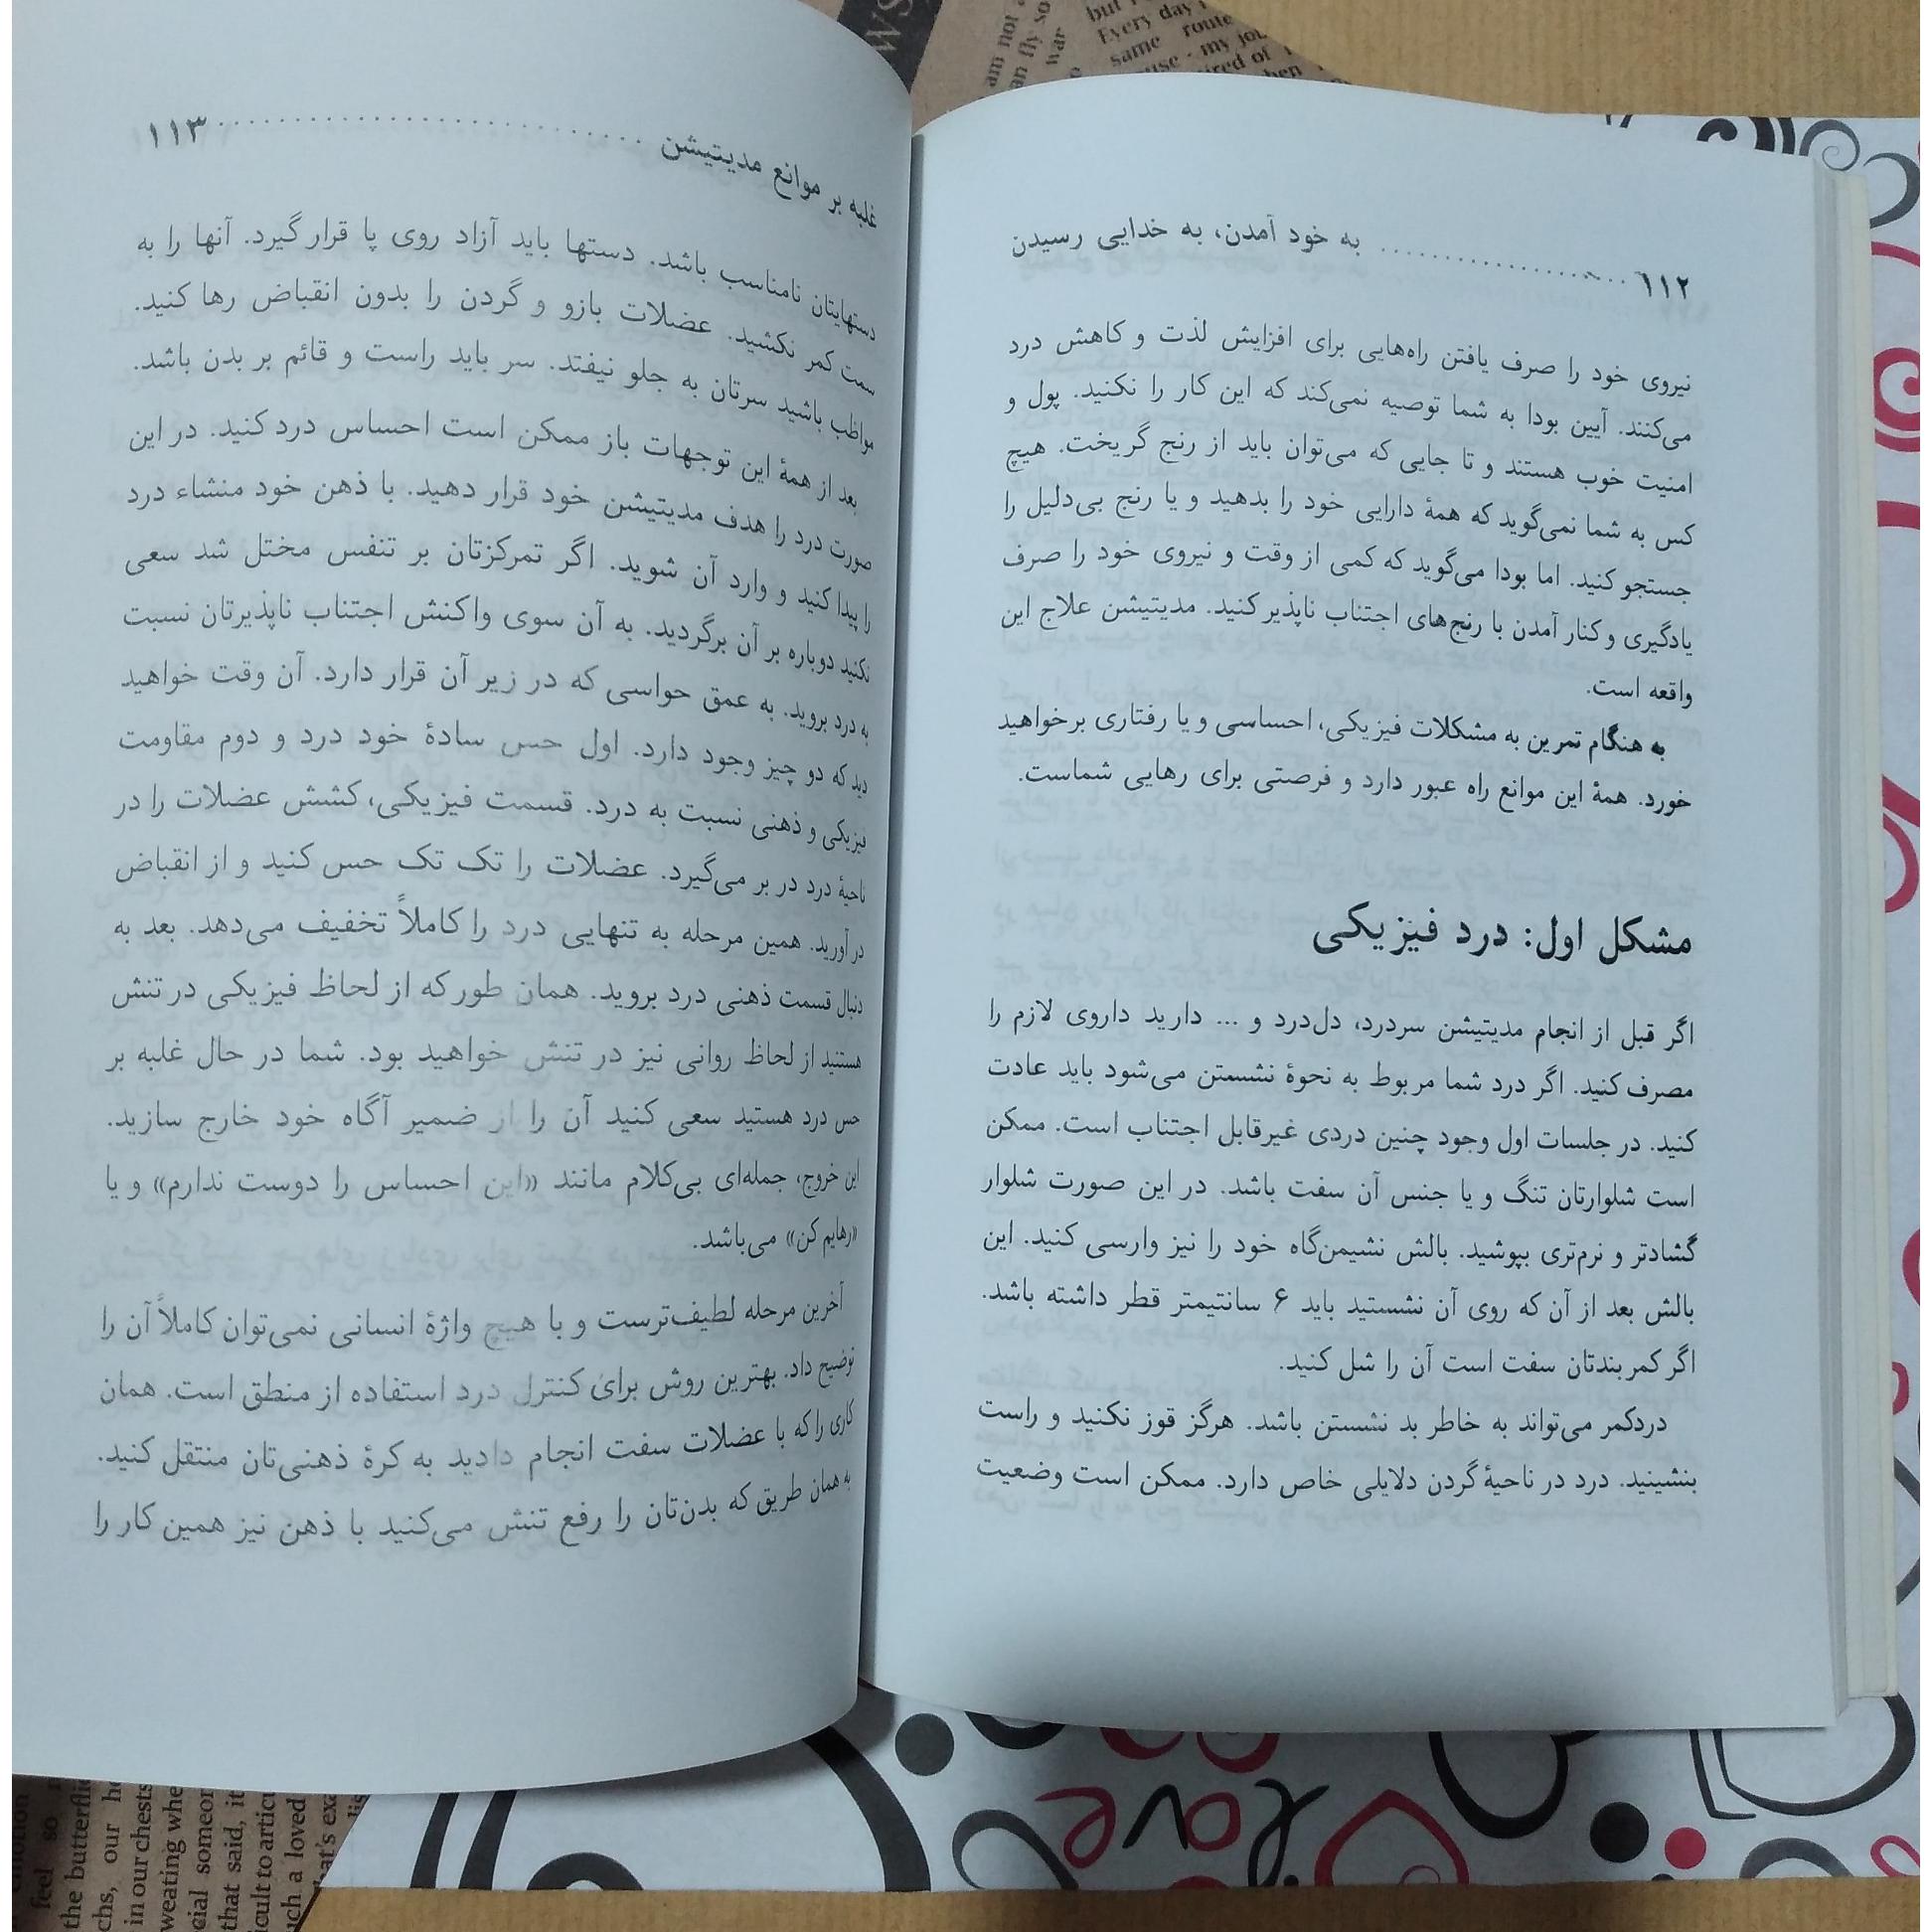 ۱۱۲ به خود آمدن، به خدایی رسیدن
نیروی خود را صرف یافتن راه‌هایی برای افزایش لذت و کاهش درد
می‌کنند. آیین بودا به شما توصیه نمی‌کند که این کار را نکنید. پول و
امنیت خوب هستند و تا جایی که می‌توان باید از رنج گریخت. هیچ
کس به شما نمی‌گوید که همهٔ دارایی خود را بدهید و یا رنج بی‌دلیل را
جستجو کنید. اما بودا می‌گوید که کمی از وقت و نیروی خود را صرف
یادگیری و کنار آمدن با رنج‌های اجتناب ناپذیر کنید. مدیتیشن علاج این
واقعه است.
به هنگام تمرین به مشکلات فیزیکی، احساسی و یا رفتاری برخواهید
خورد. همهٔ این موانع راه عبور دارد و فرصتی برای رهایی شماست.
مشکل اول: درد فیزیکی
اگر قبل از انجام مدیتیشن سردرد، دل‌درد و ... دارید داروی لازم را
مصرف کنید. اگر درد شما مربوط به نحوهٔ نشستن می‌شود باید عادت
کنید. در جلسات اول وجود چنین دردی غیرقابل اجتناب است. ممکن
است شلوارتان تنگ و یا جنس آن سفت باشد. در این صورت شلوار
گشادتر و نرم‌تری بپوشید. بالش نشیمن‌گاه خود را نیز وارسی کنید. این
بالش بعد از آن که روی آن نشستید باید ۶ سانتیمتر قطر داشته باشد.
اگر کمربندتان سفت است آن را شل کنید.
دردکمر می‌تواند به خاطر بد نشستن باشد. هرگز قوز نکنید و راست
بنشینید. درد در ناحیهٔ گردن دلایلی خاص دارد. ممکن است وضعیت
غلبه بر موانع مدیتیشن ۱۱۳
دستهایتان نامناسب باشد. دستها باید آزاد روی پا قرار گیرد. آنها را به
سمت کمر نکشید. عضلات بازو و گردن را بدون انقباض رها کنید.
مواظب باشید سرتان به جلو نیفتد. سر باید راست و قائم بر بدن باشد.
بعد از همهٔ این توجهات باز ممکن است احساس درد کنید. در این
صورت درد را هدف مدیتیشن خود قرار دهید. با ذهن خود منشاء درد
را پیدا کنید و وارد آن شوید. اگر تمرکزتان بر تنفس مختل شد سعی
نکنید دوباره بر آن برگردید. به آن سوی واکنش اجتناب ناپذیرتان نسبت
به درد بروید. به عمق حواسی که در زیر آن قرار دارد. آن وقت خواهید
دید که دو چیز وجود دارد. اول حس سادهٔ خود درد و دوم مقاومت
فیزیکی و ذهنی نسبت به درد. قسمت فیزیکی، کشش عضلات را در
ناحیهٔ درد در بر می‌گیرد. عضلات را تک تک حس کنید و از انقباض
در آورید. همین مرحله به تنهایی درد را کاملاً تخفیف می‌دهد. بعد به
دنبال قسمت ذهنی درد بروید. همان طور که از لحاظ فیزیکی در تنش
هستید از لحاظ روانی نیز در تنش خواهید بود. شما در حال غلبه بر
حس درد هستید سعی کنید آن را از ضمیر آگاه خود خارج سازید.
این خروج، جمله‌ای بی‌کلام مانند «این احساس را دوست ندارم» و یا
«رهایم کن» می‌باشد.
آخرین مرحله لطیف‌ترست و با هیچ واژهٔ انسانی نمی‌توان کاملاً آن را
توضیح داد. بهترین روش برای کنترل درد استفاده از منطق است. همان
کاری را که با عضلات سفت انجام دادید به کرهٔ ذهنی‌تان منتقل کنید.
به همان طریق که بدن‌تان را رفع تنش می‌کنید با ذهن نیز همین کار را
but
Every day
same route
my job
war
love
feel so
the butterflie
in our chests
weating whe
cial someor
that said, it
icult to articu
uch a loved